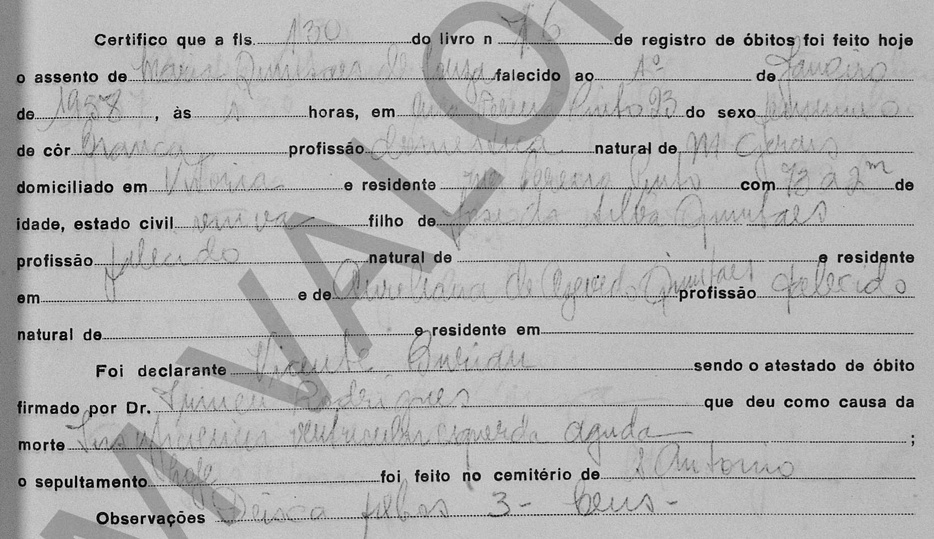 Certifico que a fls. 130 do livro n 76 de registro de óbitos foi feito hoje
o assento de Maria Quintaes de Souza falecido ao 1º de Janeiro
de 1958, às horas, em Pereira Pinto 23 do sexo feminino
de côr branca profissão domestica natural de M Gerais
domiciliado em Vitoria e residente rua Pereira Pinto com 73 a 2m de
idade, estado civil viuva filho de José da Silva Quintaes
profissão falecido natural de e residente
em e de Aureliana de Azevedo Quintaes profissão falecido
natural de e residente em
Foi declarante Vicente sendo o atestado de óbito
firmado por Dr. Rodrigues que deu como causa da
morte Insuficiencia ventricular esquerda aguda ;
o sepultamento hoje foi feito no cemitério de S Antonio
Observações Deixa filhos 3 - bens -
VALOR